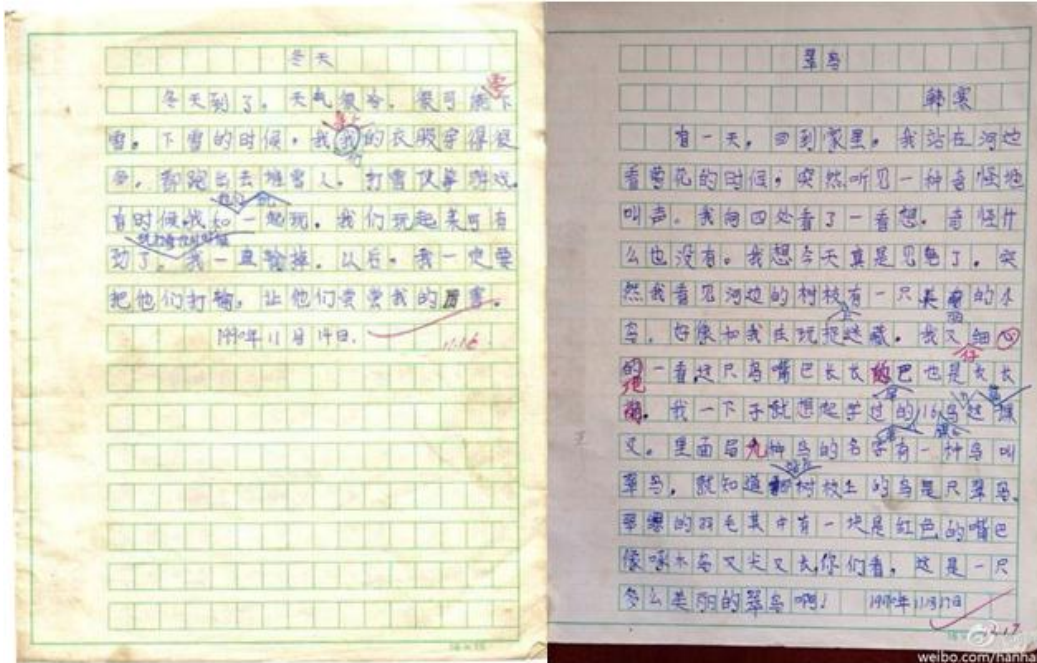 冬天
冬天到了。天气很冷。很可能下
雪。下雪的时候。我我的衣服穿得很
多。都跑出去堆雪人。打雪仗等游戏。
有时候我和一起玩。我们玩起来可有
劲了。我一直输掉。以后。我一定要
把他们打输。让他们尝尝我的厉害。
1990年11月14日.
11.16
翠鸟
韩寒
有一天。回到家里。我站在河边
看菊花的时候，突然听见一种奇怪地
叫声。我向四处看了一看想。奇怪什
么也没有。我想今天真是见鬼了。突
然我看见河边的树枝有一只美丽的小
鸟。好像和我在玩捉迷藏。我又细心
的一看这只鸟嘴巴长长尾巴也是长长
我一下子就想起学过的16鸟这课
文。里面有九种鸟的名字有一种鸟叫
翠鸟。就知道树枝上的鸟是只翠鸟。
翠绿的羽毛其中有一块是红色的嘴巴
像啄木鸟又尖又长你们看。这是一只
多么美丽的翠鸟啊！ 1990年11月17日
weibo.com/hanha